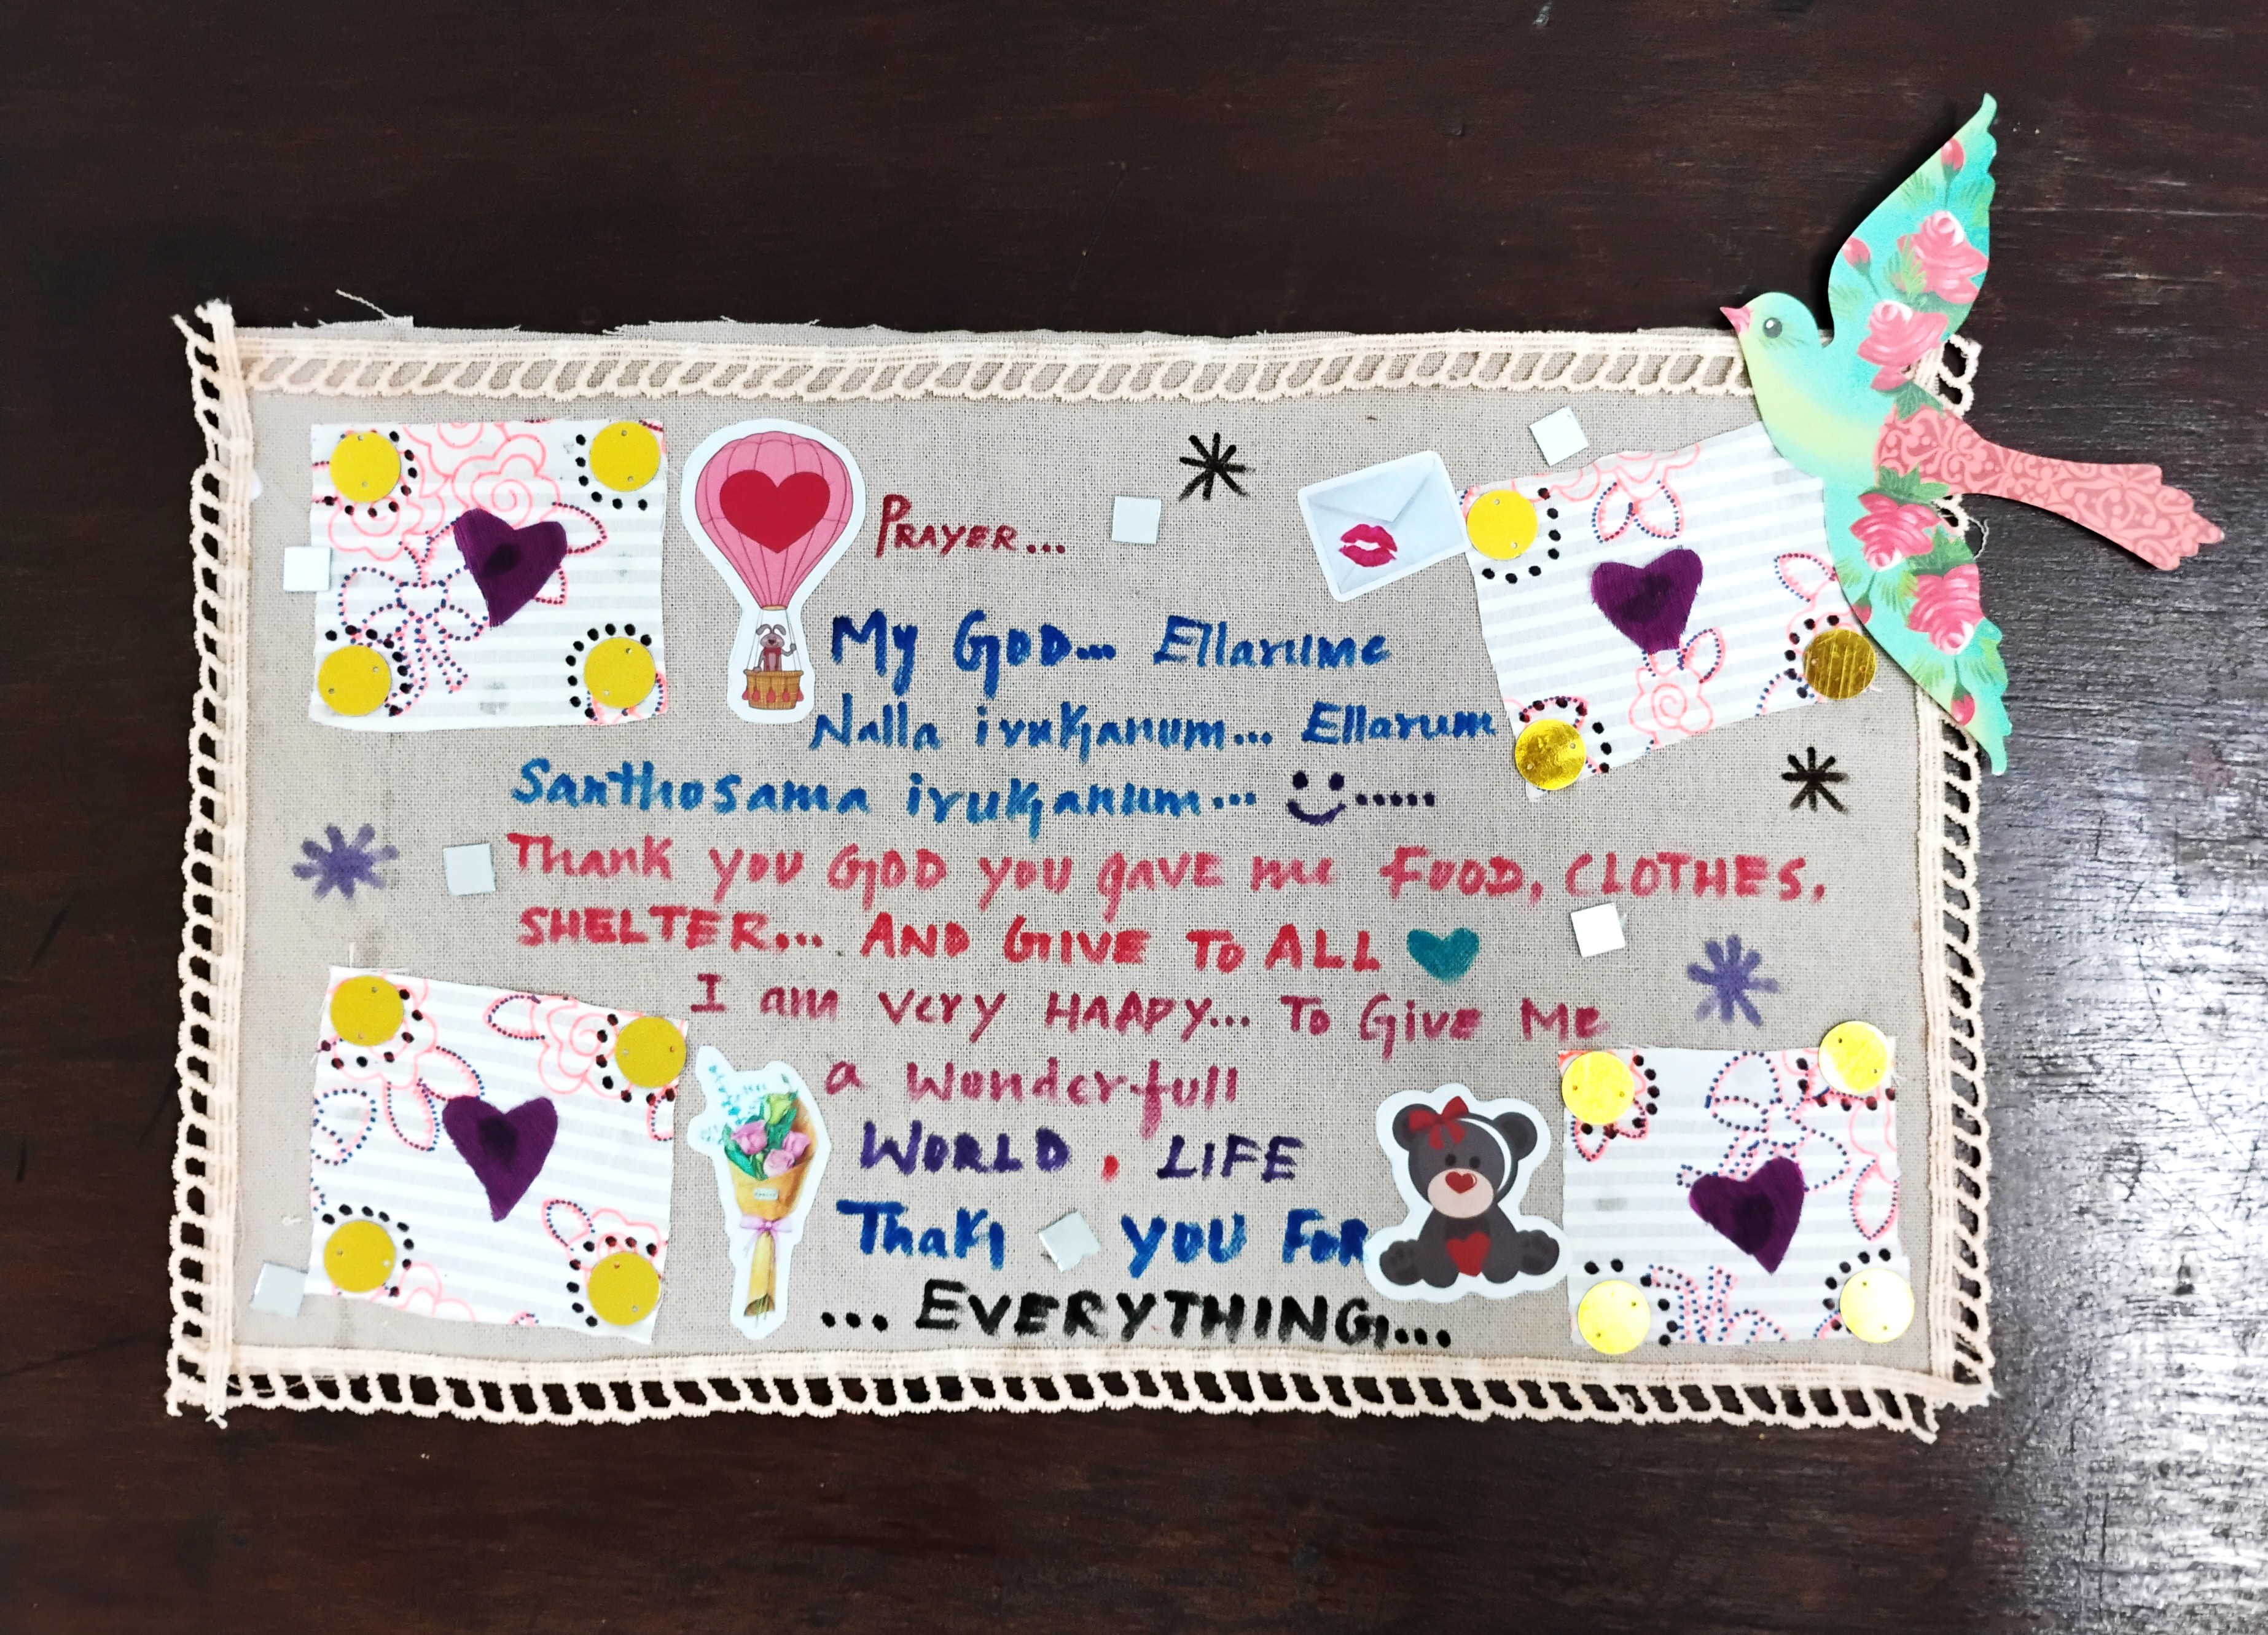 PRAYER...
My GOD... Ellarume
Nalla irukanum... Ellarum
Santhosama irukanum... .....
Thank you GOD you gave me FOOD, CLOTHES,
SHELTER... AND GIVE TO ALL
I am very HAPPY... To Give Me
a Wonderfull
WORLD, LIFE
Thak you FOR
... EVERYTHING...